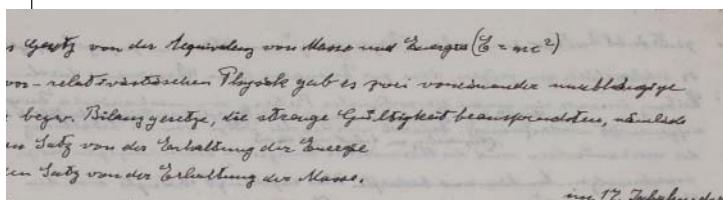 s Gesetz von der Aequivalenz von Masse und Energie (E = mc²)
vor-relativistischen Physik gab es zwei voneinander unabhängige
bezw. Bilanzgesetze, die strenge Gültigkeit beanspruchten, nämlich
en Satz von der Erhaltung der Energie
en Satz von der Erhaltung der Masse.
im 17. Jahrhunder